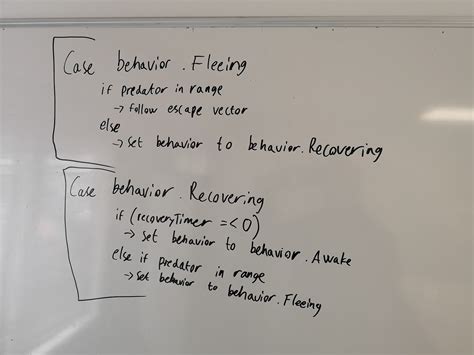 Case behavior.Fleeing
if predator in range
→ follow escape vector
else
→ set behavior to behavior.Recovering
Case behavior.Recovering
if (recoveryTimer =<0)
→ set behavior to behavior.Awake
else if predator in range
→ set behavior to behavior.Fleeing